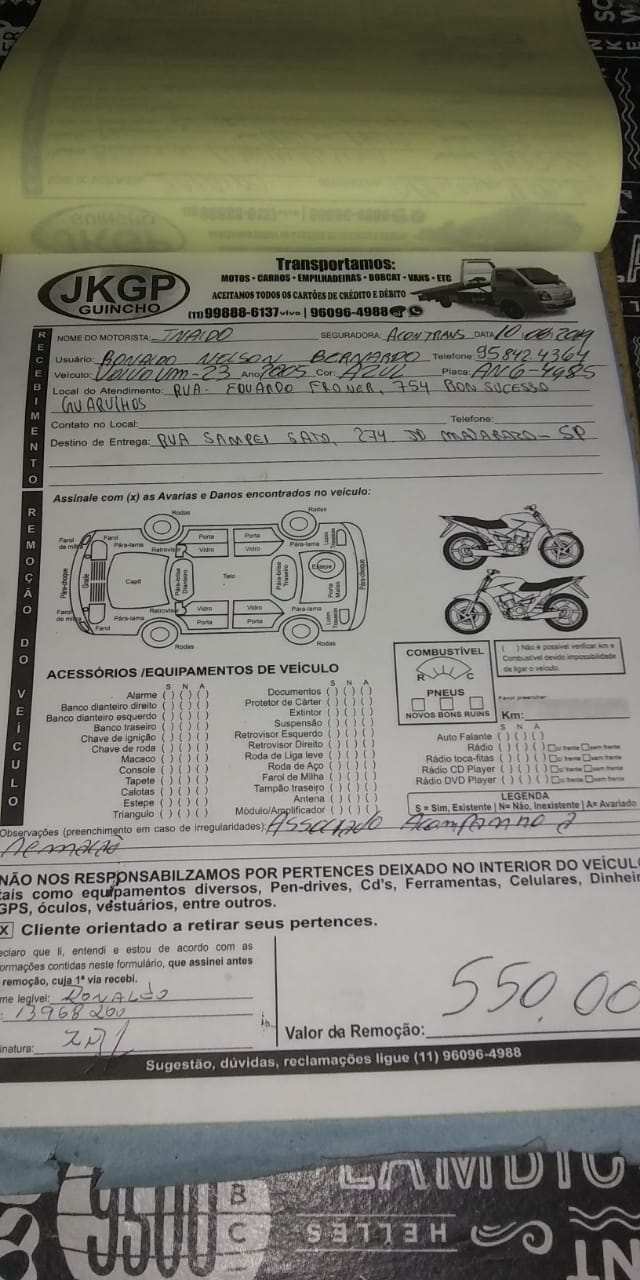 JKGP
GUINCHO
Transportamos:
MOTOS - CARROS - EMPILHADEIRAS - BOBCAT - VANS - ETC
ACEITAMOS TODOS OS CARTÕES DE CRÉDITO E DÉBITO
(11) 99888-6137 vivo | 96096-4988
RECEBIMENTO
NOME DO MOTORISTA: INALDO SEGURADORA: ACONTRANS DATA: 10.08.2019
Usuário: RONALDO NELSON BERNARDO Telefone: 95842.4364
Veículo: VOLVO VM-23 Ano 2005 Cor: AZUL Placa: ANG-4985
Local do Atendimento: RUA. EDUARDO FRONER, 754 BONSUCESSO
GUARULHOS
Contato no Local: Telefone:
Destino de Entrega: RUA SAMPEI SATO, 274 JD - SP
REMOÇÃO DO VEÍCULO
Assinale com (x) as Avarias e Danos encontrados no veículo:
Rodas Rodas
Farol de milha Farol Pára-lama Porta Porta Pára-lama Luzes Traseiras
Retrovisor Vidro Vidro
Pára-choque Grade Capô Pára-brisa Dianteiro Teto Pára-brisa Traseiro Estepe Porta Malas Pára-choque
Retrovisor Vidro Vidro
Farol de milha Farol Pára-lama Porta Porta Pára-lama Luzes Traseiras
Rodas Rodas
COMBUSTÍVEL
R C
PNEUS
NOVOS BONS RUINS
( ) Não é possível verificar km e
Combustível devido impossibilidade
de ligar o veículo.
Favor preencher:
Km:
ACESSÓRIOS /EQUIPAMENTOS DE VEÍCULO
S N A
Alarme ( ) ( ) ( )
Banco dianteiro direito ( ) ( ) ( )
Banco dianteiro esquerdo ( ) ( ) ( )
Banco traseiro ( ) ( ) ( )
Chave de ignição ( ) ( ) ( )
Chave de roda ( ) ( ) ( )
Macaco ( ) ( ) ( )
Console ( ) ( ) ( )
Tapete ( ) ( ) ( )
Calotas ( ) ( ) ( )
Estepe ( ) ( ) ( )
Triangulo ( ) ( ) ( )
S N A
Documentos ( ) ( ) ( )
Protetor de Cárter ( ) ( ) ( )
Extintor ( ) ( ) ( )
Suspensão ( ) ( ) ( )
Retrovisor Esquerdo ( ) ( ) ( )
Retrovisor Direito ( ) ( ) ( )
Roda de Liga leve ( ) ( ) ( )
Roda de Aço ( ) ( ) ( )
Farol de Milha ( ) ( ) ( )
Tampão traseiro ( ) ( ) ( )
Antena ( ) ( ) ( )
Módulo/Amplificador ( ) ( ) ( )
S N A
Auto Falante ( ) ( ) ( )
Rádio ( ) ( ) ( ) c/ frente sem frente
Rádio toca-fitas ( ) ( ) ( ) c/ frente sem frente
Rádio CD Player ( ) ( ) ( ) c/ frente sem frente
Rádio DVD Player ( ) ( ) ( ) c/ frente sem frente
LEGENDA
S = Sim, Existente | N= Não, Inexistente | A= Avariado
Observações (preenchimento em caso de irregularidades): Associado Acompanhou a
Remoção
NÃO NOS RESPONSABILZAMOS POR PERTENCES DEIXADO NO INTERIOR DO VEÍCULO
tais como equipamentos diversos, Pen-drives, Cd's, Ferramentas, Celulares, Dinhei
GPS, óculos, vestuários, entre outros.
X Cliente orientado a retirar seus pertences.
eclaro que li, entendi e estou de acordo com as
ormações contidas neste formulário, que assinei antes
remoção, cuja 1ª via recebi.
me legível: RONALDO
: 13968200
inatura:
Valor da Remoção: 550,00
Sugestão, dúvidas, reclamações ligue (11) 96096-4988
9500
B
C
HELLES